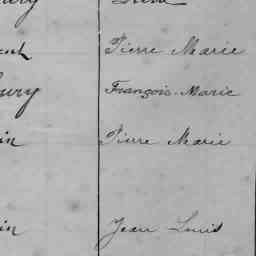 Pierre Marie
François-Marie
in Pierre Marie
in Jean Louis